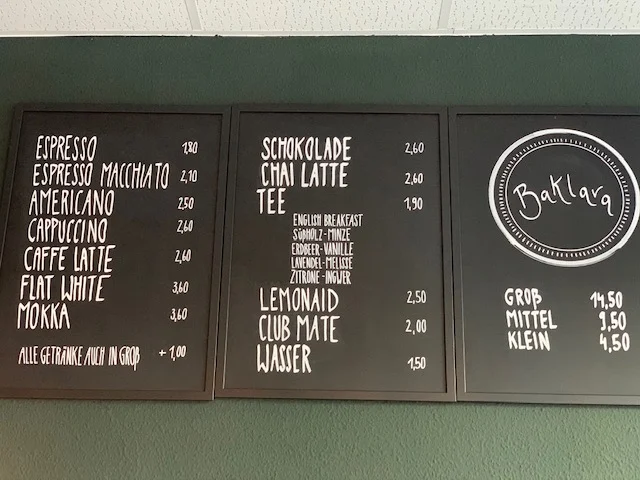 ESPRESSO 1,80
ESPRESSO MACCHIATO 2,10
AMERICANO 2,50
CAPPUCCINO 2,60
CAFFE LATTE 2,60
FLAT WHITE 3,60
MOKKA 3,60
ALLE GETRÄNKE AUCH IN GROß + 1,00
SCHOKOLADE 2,60
CHAI LATTE 2,60
TEE 1,90
ENGLISH BREAKFAST
SÜßHOLZ-MINZE
ERDBEER-VANILLE
LAVENDEL-MELISSE
ZITRONE-INGWER
LEMONAID 2,50
CLUB MATE 2,00
WASSER 1,50
Baklara
GROß 14,50
MITTEL 9,50
KLEIN 4,50